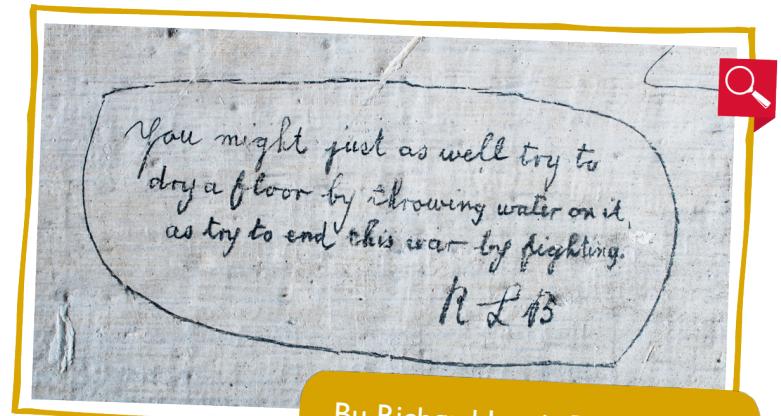 You might just as well try to
dry a floor by throwing water on it,
as try to end this war by fighting.
R L B
By Richard